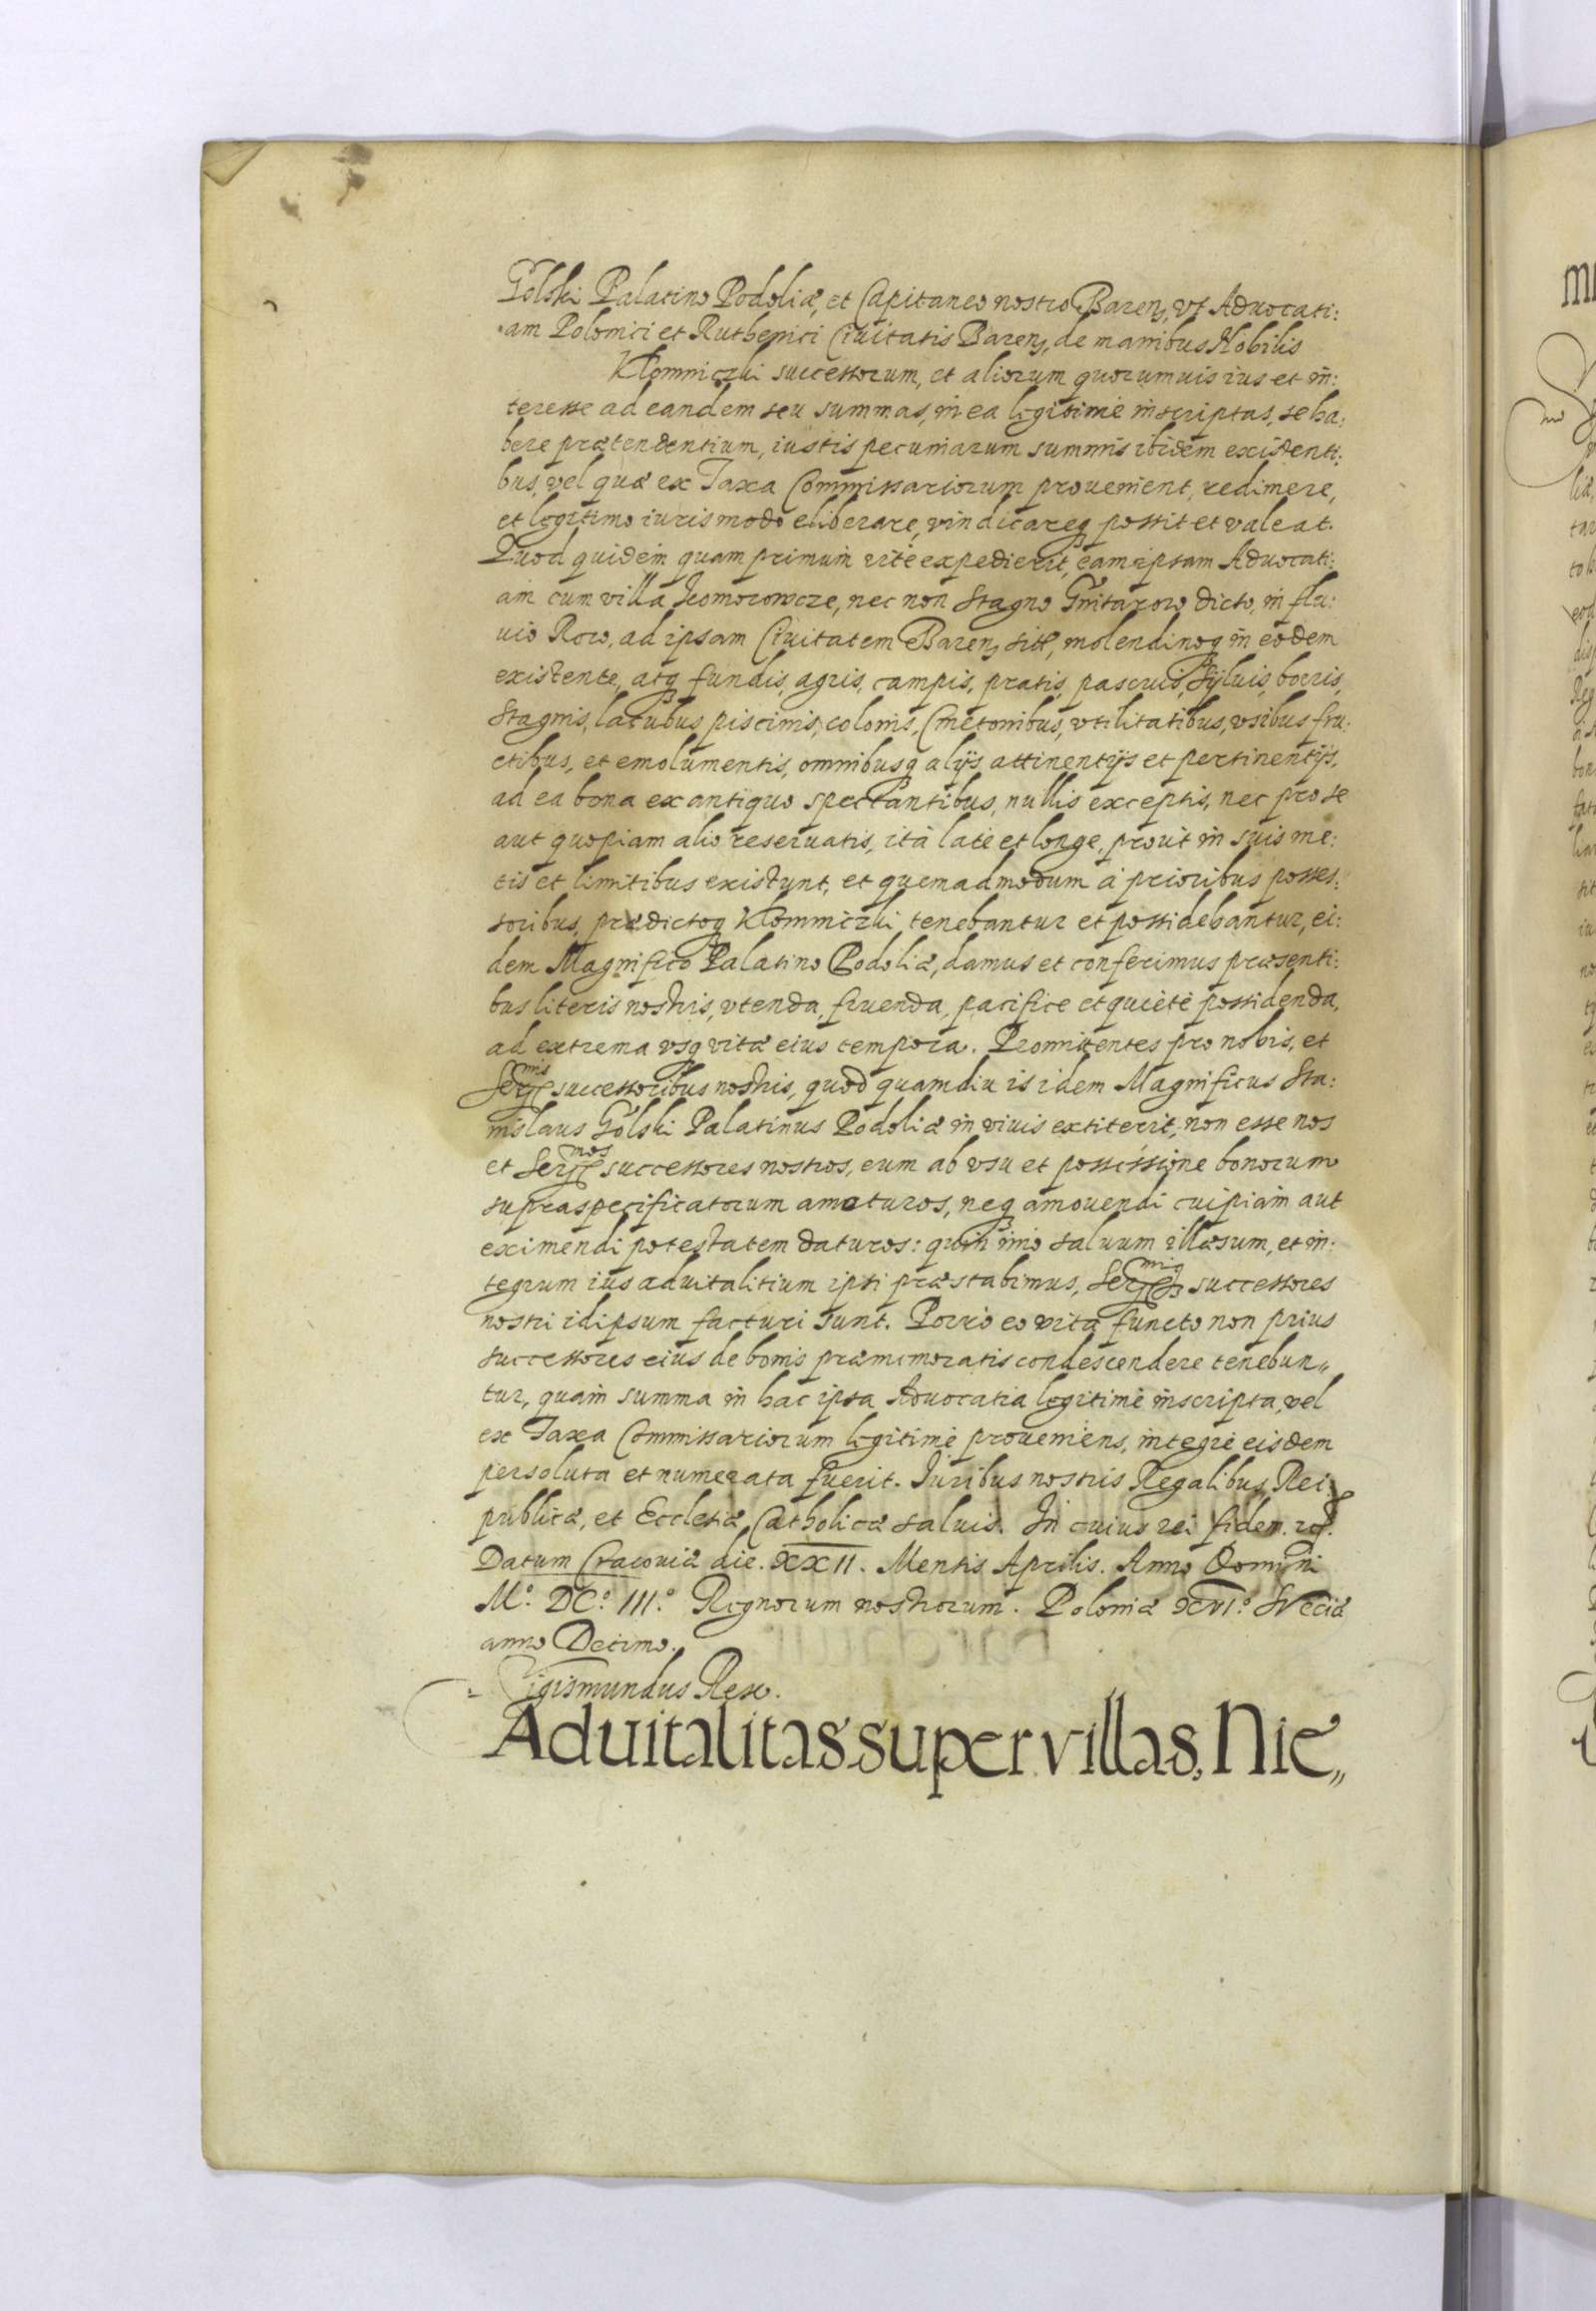 Gólski Palatino Podoliæ, et Capitaneo nostro Barens, vt Aduocati:
am Polonici et Ruthenici Ciuitatis Barens, de manibus Nobilis
Klomniczki successorum, et aliorum quorumuis ius et in:
teresse ad eandem seu summas, in ea legitimè inscriptas, se ha:
bere prætendentium, iustis pecuniarum summis ibidem existenti:
bus, vel quæ ex Taxa Commissariorum prouenient, redimere,
et legitimo iuris modo eliberare, vindicareq possit et valeat.
Quod quidem quam primum ritè expedierit, eam ipsam Aduocati:
am cum villa Komorowcze, nec non Stagno Gnitarow dicto, in flu:
uio Row, ad ipsam Ciuitatem Barens sit, molendinoq in eodem
existente, atq fundis, agris, campis, pratis, pascuis, Syluis, borris,
Stagnis, lacubus, piscinis, colonis, Cmetonibus, vtilitatibus, vsibus fru:
ctibus, et emolumentis, omnibusq alijs attinentijs et pertinentijs,
ad ea bona ex antiquo spectantibus, nullis exceptis, nec pro se
aut quopiam alio reseruatis, ità latè et longe, prout in suis me:
tis et limitibus existunt, et quemadmodum à prioribus posses:
soribus, prædictoq Klomniczki tenebantur et possidebantur, ei:
dem Magnifico Palatino Podoliæ, damus et conferimus præsenti:
bus literis nostris, vtenda, fruenda, pacifice et quietè possidenda,
ad extrema vsq vitæ eius tempora. Promittentes pro nobis, et
Ser[nis] successoribus nostris, quòd quamdiu is idem Magnificus Sta:
nislaus Gólski Palatinus Podoliæ in viuis extiterit, non esse nos
et Ser[mos] successores nostros, eum ab vsu et possessione bonorum
supraspecificatorum amoturos, neq amouendi cuipiam aut
eximendi potestatem daturos: quin imò saluum illæsum, et in:
tegrum ius aduitalitium ipsi præstabimus, Ser[miq] successores
nostri idipsum facturi sunt. Porrò eo vita functo non prius
successores eius de bonis præmemoratis condescendere tenebun„
tur, quam summa in hac ipsa Aduocatia legitimè inscripta, vel
ex Taxa Commissariorum legitimè proueniens, integrè eisdem
persoluta et numerata fuerit. Iuribus nostris Regalibus, Rei:
publicæ, et Ecclesiæ Catholicæ saluis. In cuius rei fidem. etc.
Datum Cracouiæ die. XXII. Mensis Aprilis. Anno Domini
M.º DC.º III.º Regnorum nostrorum. Poloniæ XVI.º Sueciæ
anno Decimo.
Sigismundus Rex.
Aduitalitas super villas, Nie„